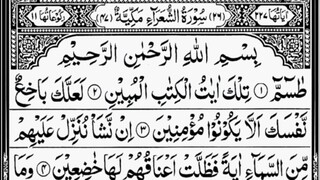 اٰیاتُهَا ٢٢٧ (٢٦) سُوْرَةُ الشُّعَرَآءِ مَكِّيَّةٌ (٤٧) رُكُوْعَاتُهَا ١١
بِسْمِ اللهِ الرَّحْمٰنِ الرَّحِيْمِ
طٰسٓمّٓ ۝١ تِلْكَ اٰيٰتُ الْكِتٰبِ الْمُبِيْنِ ۝٢ لَعَلَّكَ بَاخِعٌ
نَّفْسَكَ اَلَّا يَكُوْنُوْا مُؤْمِنِيْنَ ۝٣ اِنْ نَّشَاْ نُنَزِّلْ عَلَيْهِمْ
مِّنَ السَّمَآءِ اٰيَةً فَظَلَّتْ اَعْنَاقُهُمْ لَهَا خٰضِعِيْنَ ۝٤ وَمَا